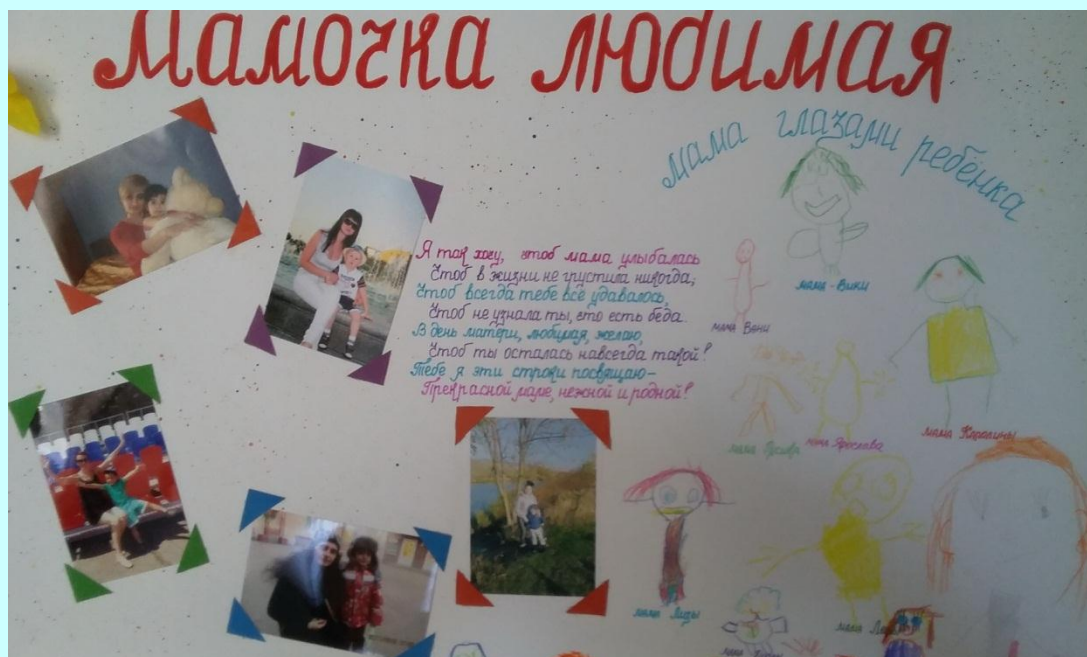 Мамочка любимая
мама глазами ребёнка
Я так хочу, чтоб мама улыбалась
Чтоб в жизни не грустила никогда;
Чтоб всегда тебе всё удавалось,
Чтоб не узнала ты, что есть беда.
В день матери, любимая, желаю,
Чтоб ты осталась навсегда такой!
Тебе я эти строки посвящаю–
Прекрасной маме, нежной и родной!
мама Вани
мама-Вики
мама
мама Ярослава
мама Каролины
мама Лизы
мама
мама